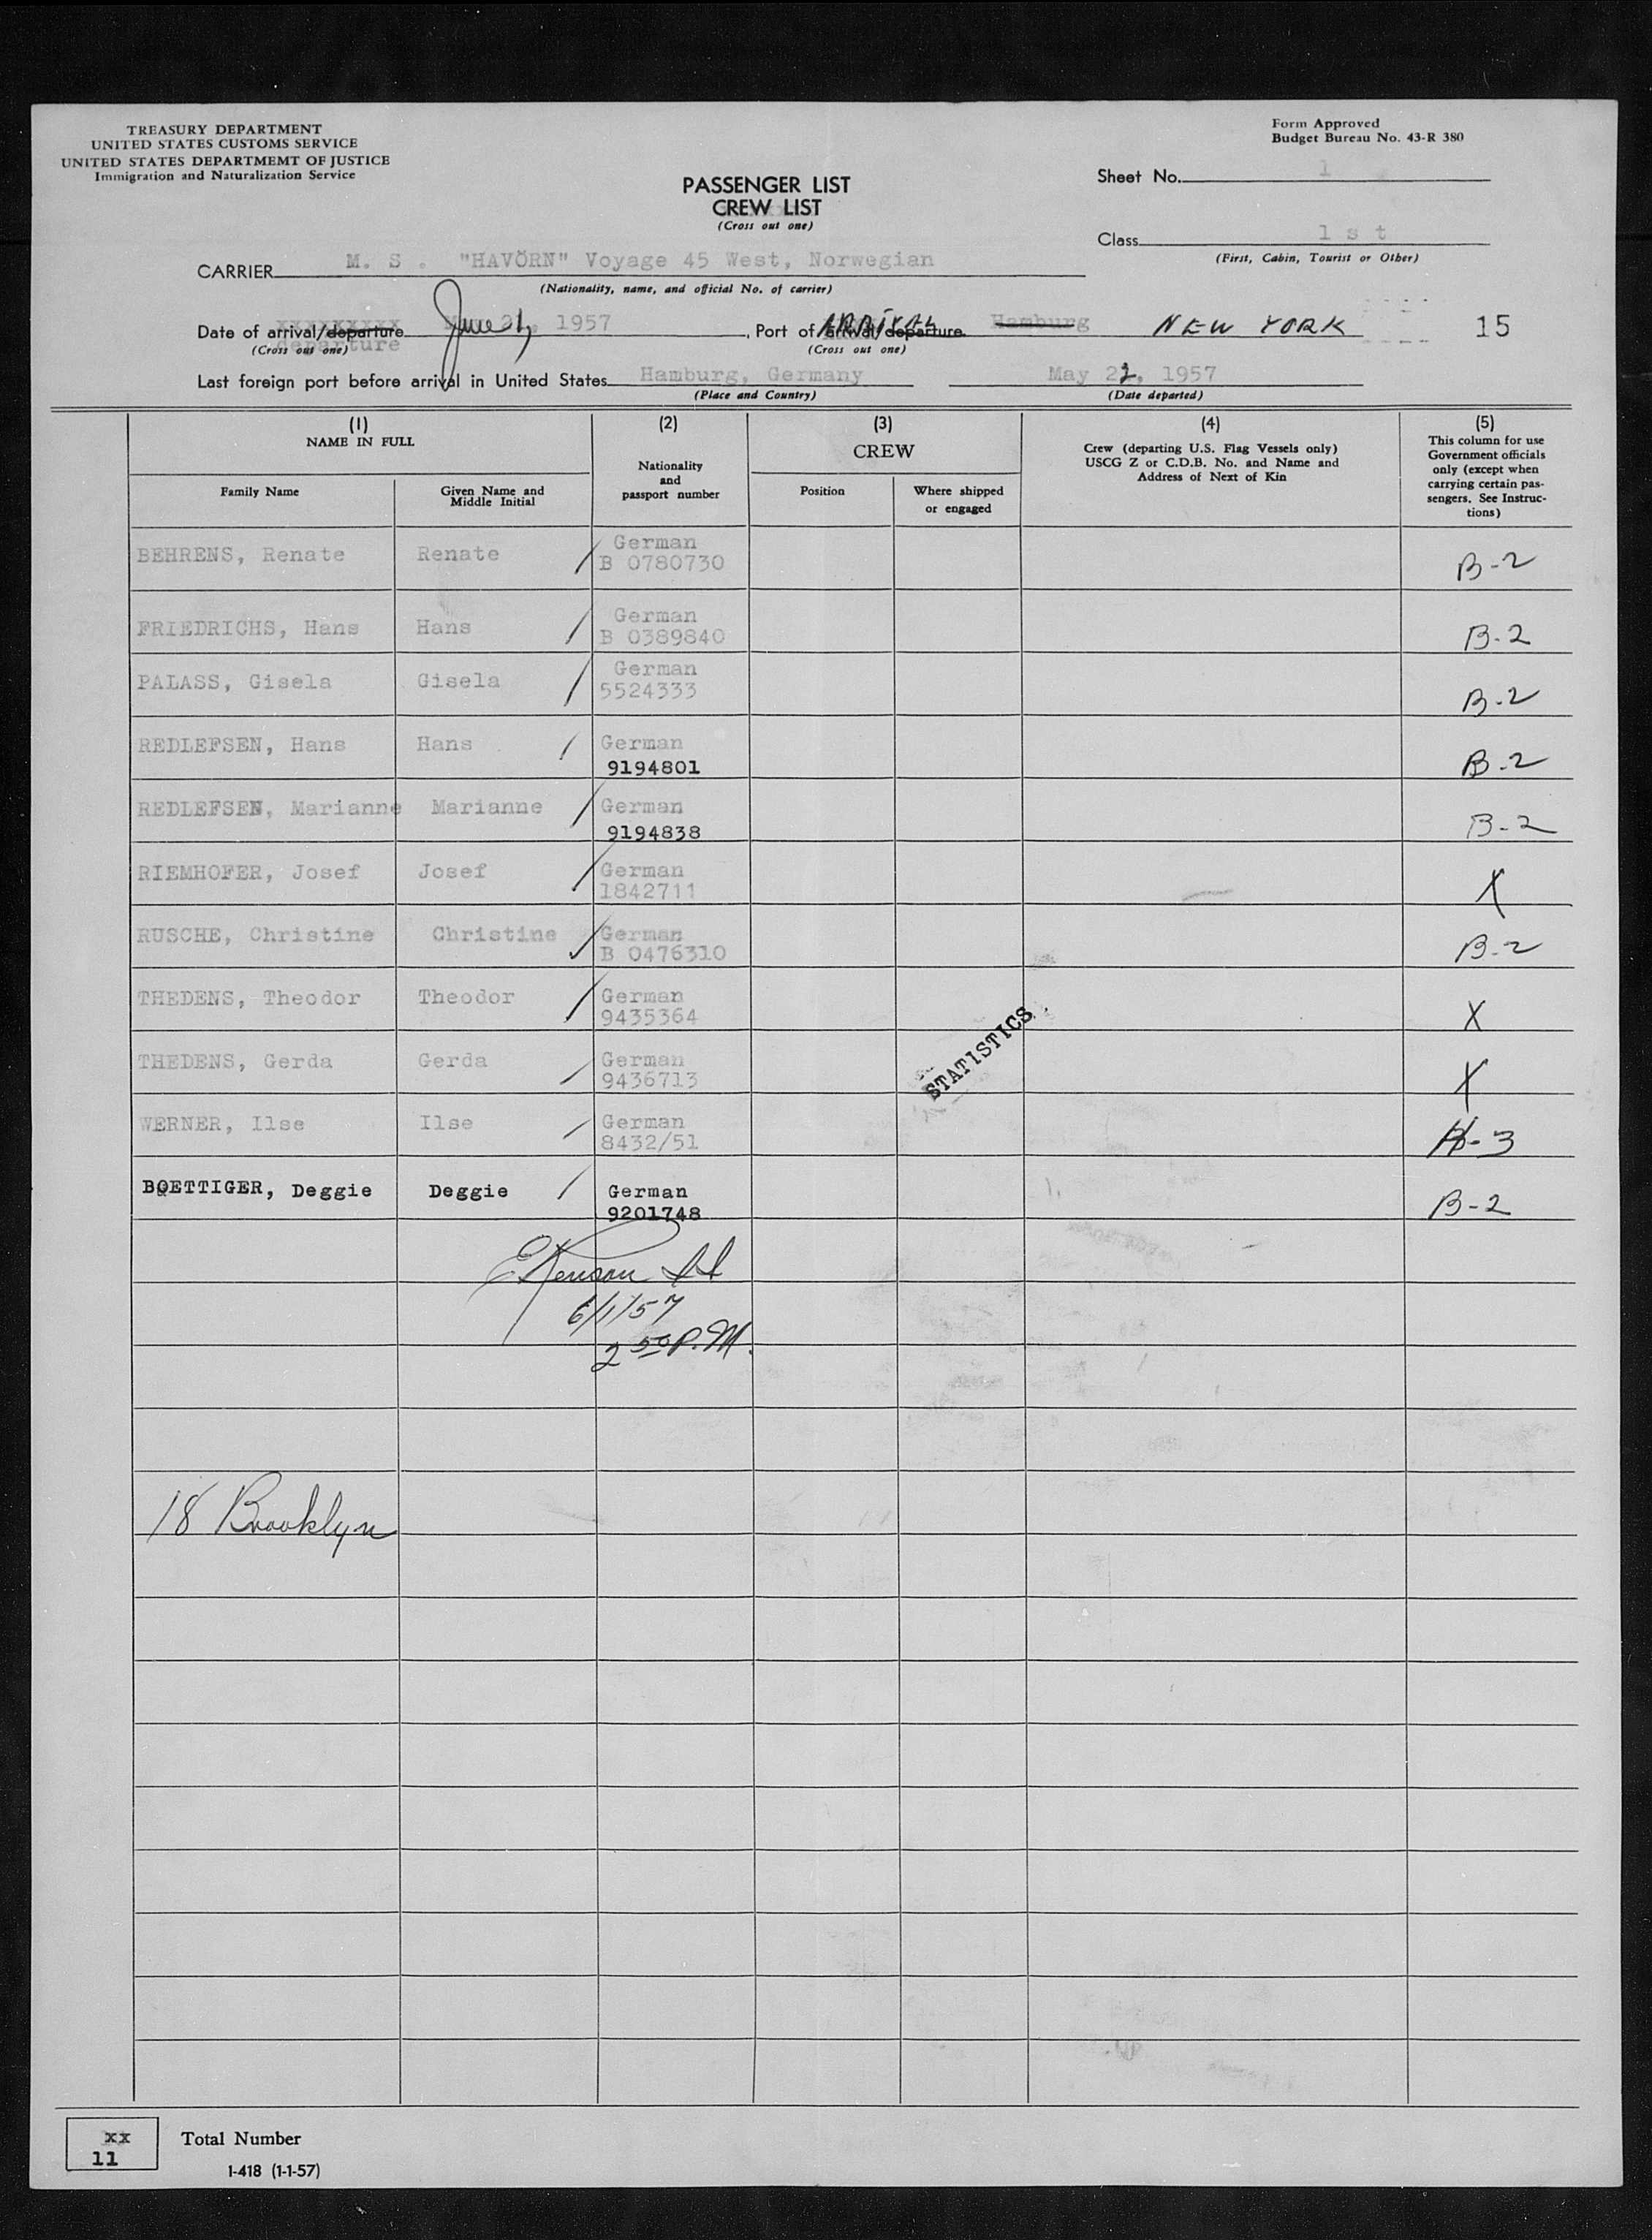 TREASURY DEPARTMENT
UNITED STATES CUSTOMS SERVICE
UNITED STATES DEPARTMEMT OF JUSTICE
Immigration and Naturalization Service
Form Approved
Budget Bureau No. 43-R 380
PASSENGER LIST
CREW LIST
(Cross out one)
Sheet No. 1
Class 1st
(First, Cabin, Tourist or Other)
CARRIER M. S. "HAVÖRN" Voyage 45 West, Norwegian
(Nationality, name, and official No. of carrier)
Date of arrival/departure June 1, 1957, Port of ARRIVAL arrival/departure Hamburg NEW YORK 15
(Cross out one) departure (Cross out one)
Last foreign port before arrival in United States Hamburg, Germany May 22, 1957
(Place and Country) (Date departed)
(1) (2) (3) (4) (5)
NAME IN FULL
Family Name
Given Name and
Middle Initial
Nationality
and
passport number
CREW
Position
Where shipped
or engaged
Crew (departing U.S. Flag Vessels only)
USCG Z or C.D.B. No. and Name and
Address of Next of Kin
This column for use
Government officials
only (except when
carrying certain pas-
sengers. See Instruc-
tions)
BEHRENS, Renate Renate / German B-2
B 0780730
FRIEDRICHS, Hans Hans / German B-2
B 0389840
PALASS, Gisela Gisela / German B-2
5524333
REDLEFSEN, Hans Hans / German B-2
9194801
REDLEFSEN, Marianne Marianne / German B-2
9194838
RIEMHOFER, Josef Josef / German X
1842711
RUSCHE, Christine Christine / German B-2
B 0476310
THEDENS, Theodor Theodor / German X
9435364
STATISTICS
THEDENS, Gerda Gerda / German X
9436713
WERNER, Ilse Ilse / German B-3
8432/51
BOETTIGER, Deggie Deggie / German B-2
9201748
6/1/57
2 50 P.M.
18 Brooklyn
xx
11
Total Number
I-418 (1-1-57)